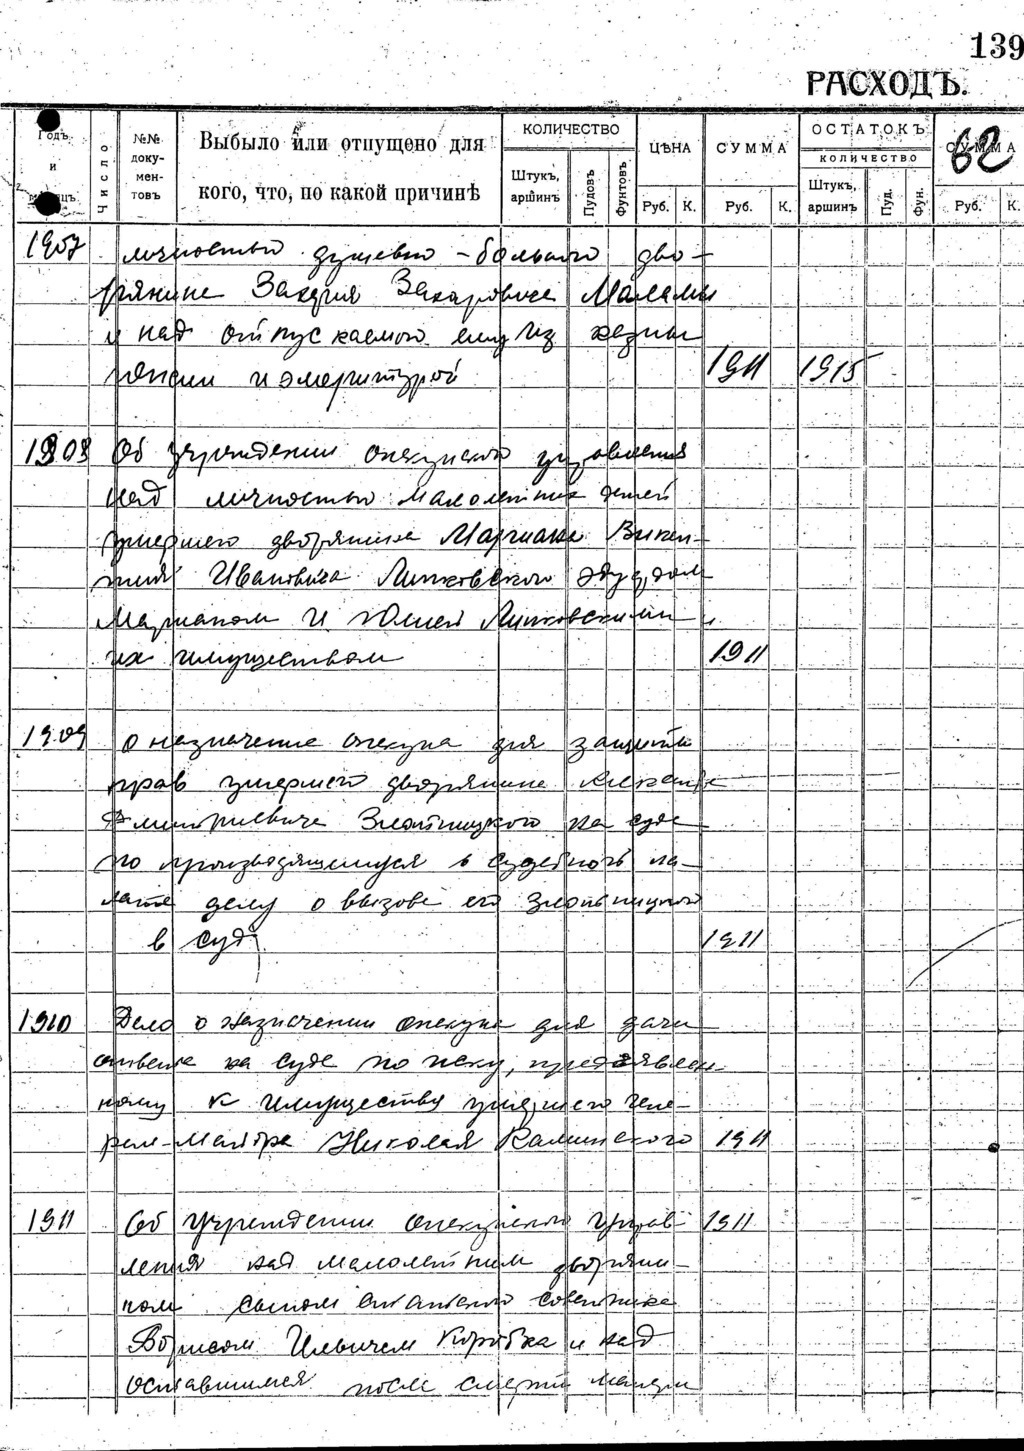 139
РАСХОДЪ.
62
Годъ и мѣсяцъ
Число
№№ доку- мен- товъ
Выбыло или отпущено для
кого, что, по какой причинѣ
КОЛИЧЕСТВО
Штукъ, аршинъ
Пудовъ
Фунтовъ
ЦѢНА
Руб. К.
СУММА
Руб. К.
ОСТАТОКЪ
КОЛИЧЕСТВО
Штукъ, аршинъ
Пуд.
Фун.
СУММА
Руб. К.
1907 личностью душевно-больного дво-
рянина Захария Захаровича Маламы
и над отпускаемого ему из казны
пенсии и эмеритурой 1911 1915
1908 Об учреждении опекунского управления
над личностью малолетних детей
умершего дворянина Мариана Викен-
тия Ивановича Липковского Эдуардом
Марианом и Юлией Липковскими и
их имуществом 1911
1909 О назначение опекуна для защиты
прав умершего дворянина
Дмитриевича Злотницкого на суде
по производящемуся в судебной па-
лате делу о вызове его Злотницкого
в суд 1911
1910 Дело о назначении опекуна для дачи
ответа на суде по иску, предъявлен-
ному к имуществу умершего гене-
рал-майора Николая Калинского 1911
1911 Об учреждении опекунского управ- 1911
ления над малолетним дворяни-
ном сыном статского советника
Борисом Ильичем Коробка и над
оставшимся после смерти матери